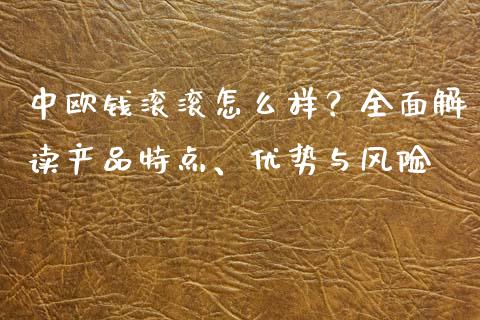 中欧钱滚滚怎么样？全面解
读产品特点、优势与风险